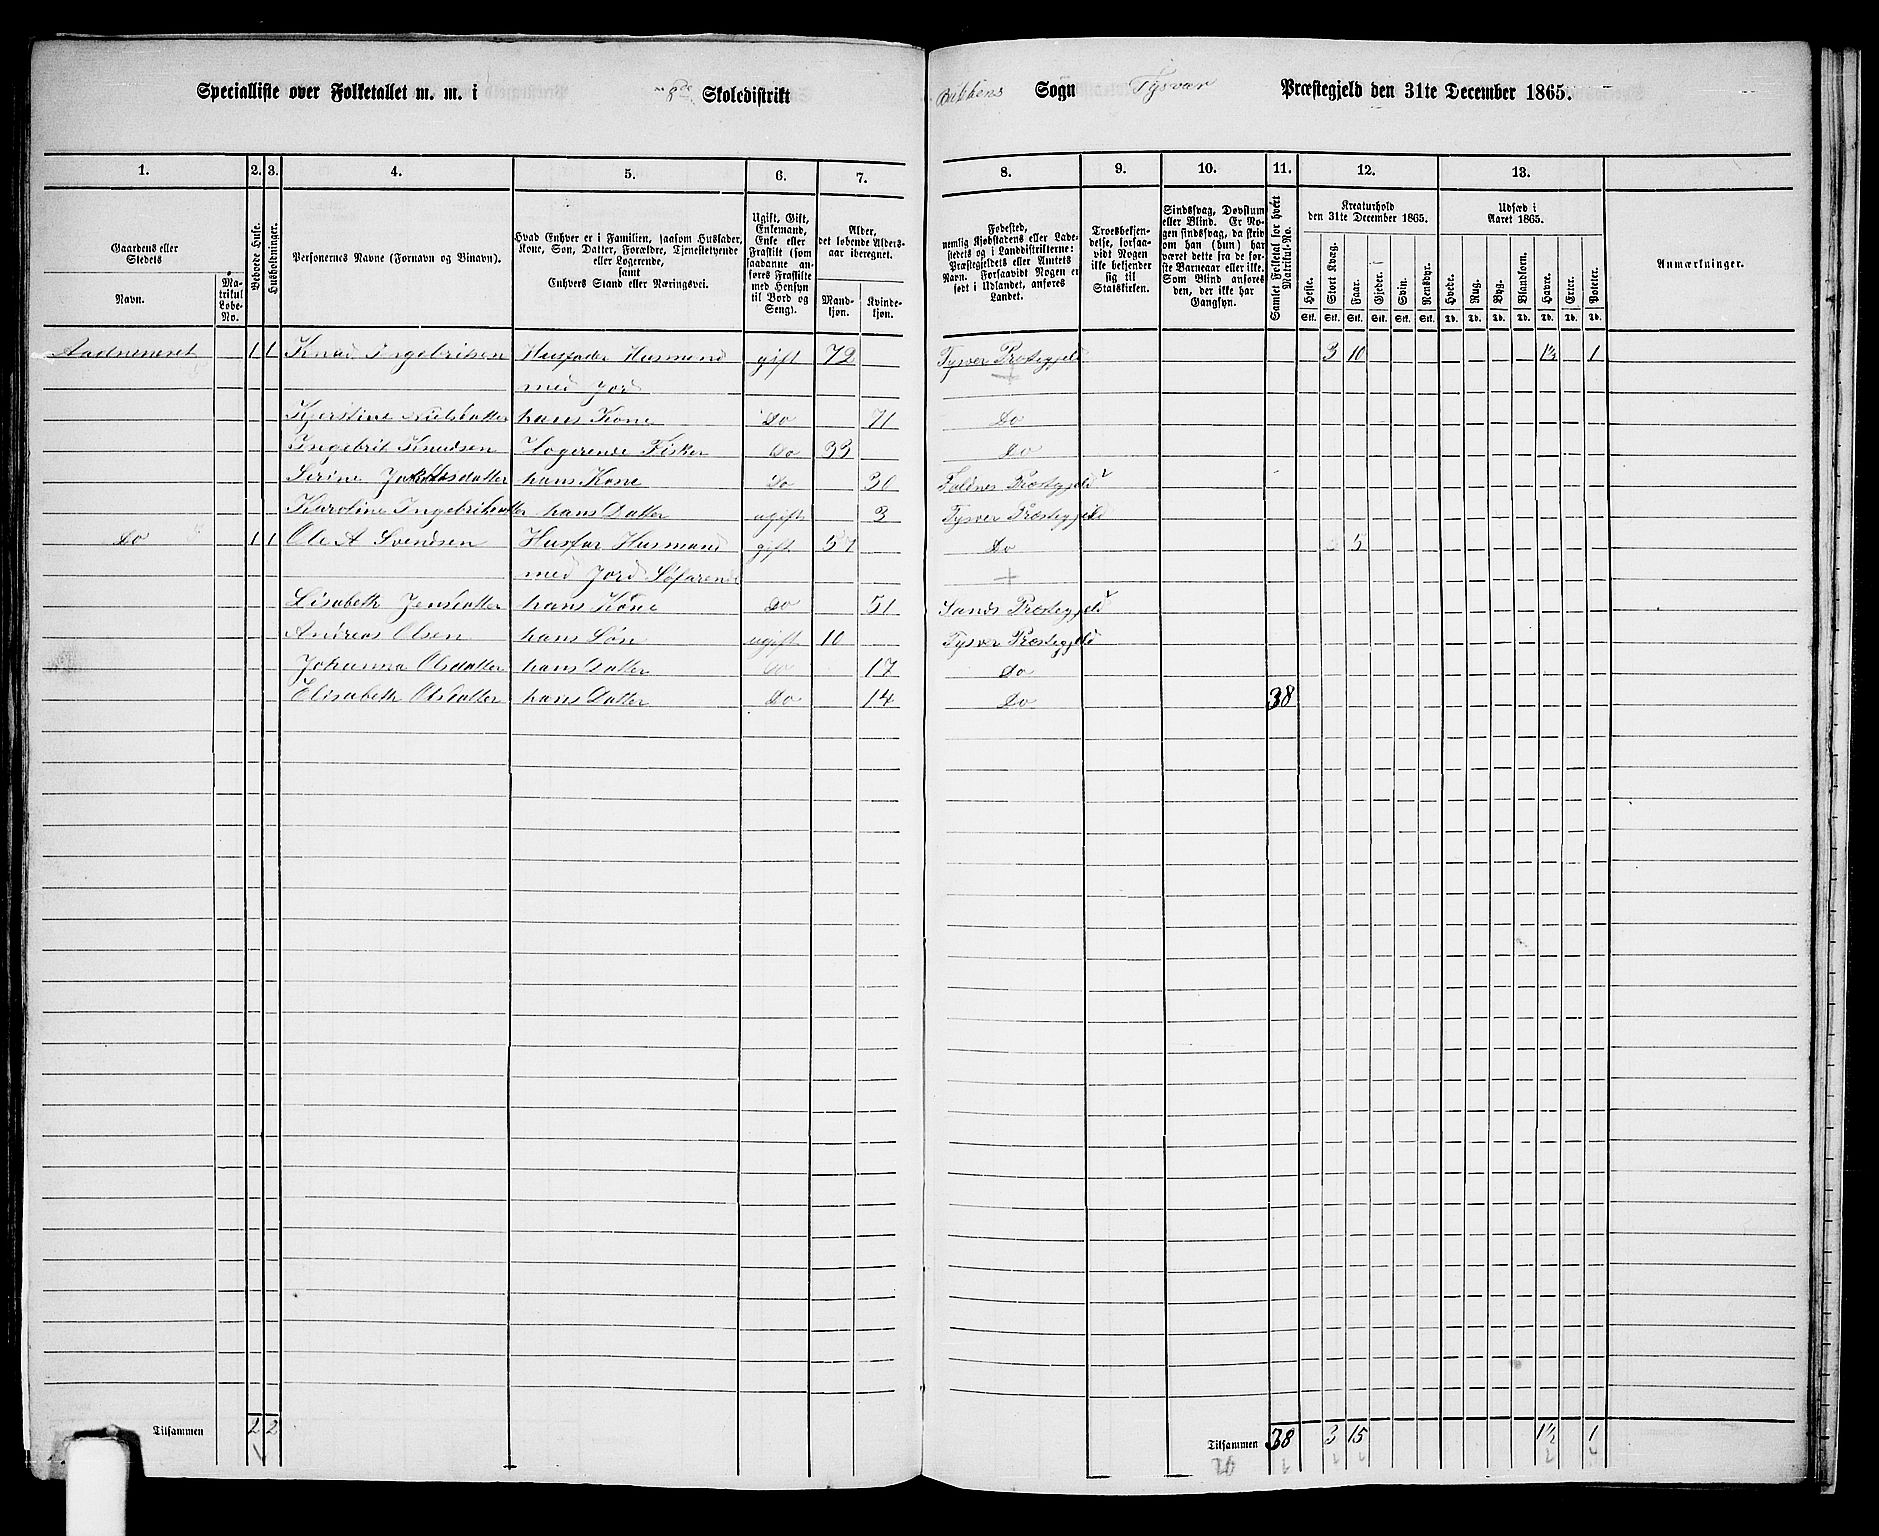 Specialliste over Folketallet m. m. i 8de Skoledistrikt
Sogn Tysvær Præstegjeld den 31te December 1865.
1. 2. 3. 4. 5. 6. 7. 8. 9. 10. 11. 12. 13.
Gaardens eller Stedets
Navn.
Matrikul Løbe-No.
Beboede Huse.
Husholdninger.
Personernes Navne (Fornavn og Binavn).
Hvad Enhver er i Familien, saasom Husfader, Kone, Søn, Datter, Forældre, Tjenestetyende eller Logerende,
samt
Enhvers Stand eller Næringsvei.
Ugift, Gift, Enkemand, Enke eller Fraskilt (som saadanne anføres Fraskilte med Hensyn til Bord og Seng).
Alder, det løbende Alders-aar iberegnet.
Mand-kjøn.
Kvinde-kjøn.
Fødested, nemlig Kjøbstadens eller Lade-stedets og i Landdistrikterne: Præstegjeldets eller Amtets Navn. Forsaavidt Nogen er født i Udlandet, anføres Landet.
Troesbekjen-delse, forsaa-vidt Nogen ikke bekjender sig til Statskirken.
Sindssvag, Døvstum eller Blind. Er No-gen sindssvag, da skriv om han (hun) har været dette fra de før-ste Barneaar eller ikke. Som Blind anføres den, der ikke har Gangsyn.
Samlet Folketal for hvert Matrikul-No.
Kreaturhold den 31te December 1865.
Heste. Stort Kvæg. Faar. Gjeder. Svin. Rensdyr.
Stk. Stk. Stk. Stk. Stk. Stk.
Udsæd i Aaret 1865.
Hvede. Rug. Byg. Blandkorn. Havre. Erter. Poteter.
Td. Td. Td. Td. Td. Td. Td.
Anmærkninger.
Aadneneret 1 1 Knud Ingebritsen Husfader Husmand gift 72 Tysver Præstegjeld 3 10 1½ 1
med Jord
Kjerstine Nielsdatter hans Kone Do 71 Do
Ingebrit Knudsen Logerende Fisker Do 33 Do
Serine hans Kone Do 30 Præstegjeld
Karoline Ingebritsdatter hans Datter ugift 3 Tysver Præstegjeld
Do 1 1 Ole A Svendsen Husfar Husmand gift 57 Do 5
med Jord Søfarende
Lisabeth Jensdatter hans Kone Do 51 Sands Præstegjeld
Andreas Olsen hans Søn ugift 10 Tysver Præstegjeld
Johanna Olsdatter hans Datter Do 17 Do
Elisabeth Olsdatter hans Datter Do 14 Do 38
Tilsammen 2 2
Tilsammen 38 3 15 1½ 1